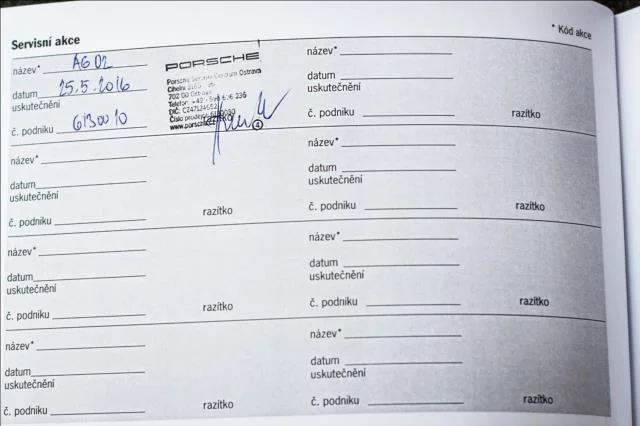 * Kód akce
Servisní akce
název* AG02
datum 25.5.2016
uskutečnění
č. podniku 6130010
PORSCHE
Ostrava
702 00
Telefon: 236
www.porsche
4
razítko
název*
datum
uskutečnění
č. podniku razítko
název*
datum
uskutečnění
č. podniku razítko
název*
datum
uskutečnění
č. podniku razítko
název*
datum
uskutečnění
č. podniku razítko
název*
datum
uskutečnění
č. podniku razítko
název*
datum
uskutečnění
č. podniku razítko
název*
datum
uskutečnění
č. podniku razítko